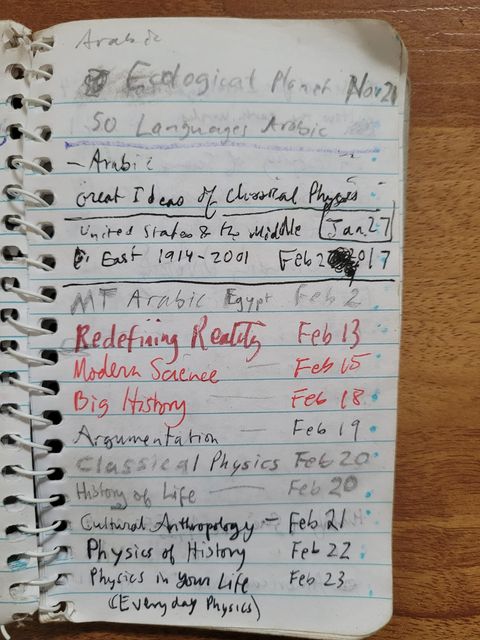 Arabic
Ecological Planet Nov 21
50 Languages Arabic
- Arabic
Great Ideas of Classical Physics
United States & the Middle Jan 27
East 1914-2001 Feb 2 2017
MT Arabic Egypt Feb 2
Redefining Reality Feb 13
Modern Science — Feb 15
Big History — Feb 18
Argumentation — Feb 19
Classical Physics Feb 20
History of Life — Feb 20
Cultural Anthropology - Feb 21
Physics of History Feb 22
Physics in Your Life Feb 23
(Everyday Physics)